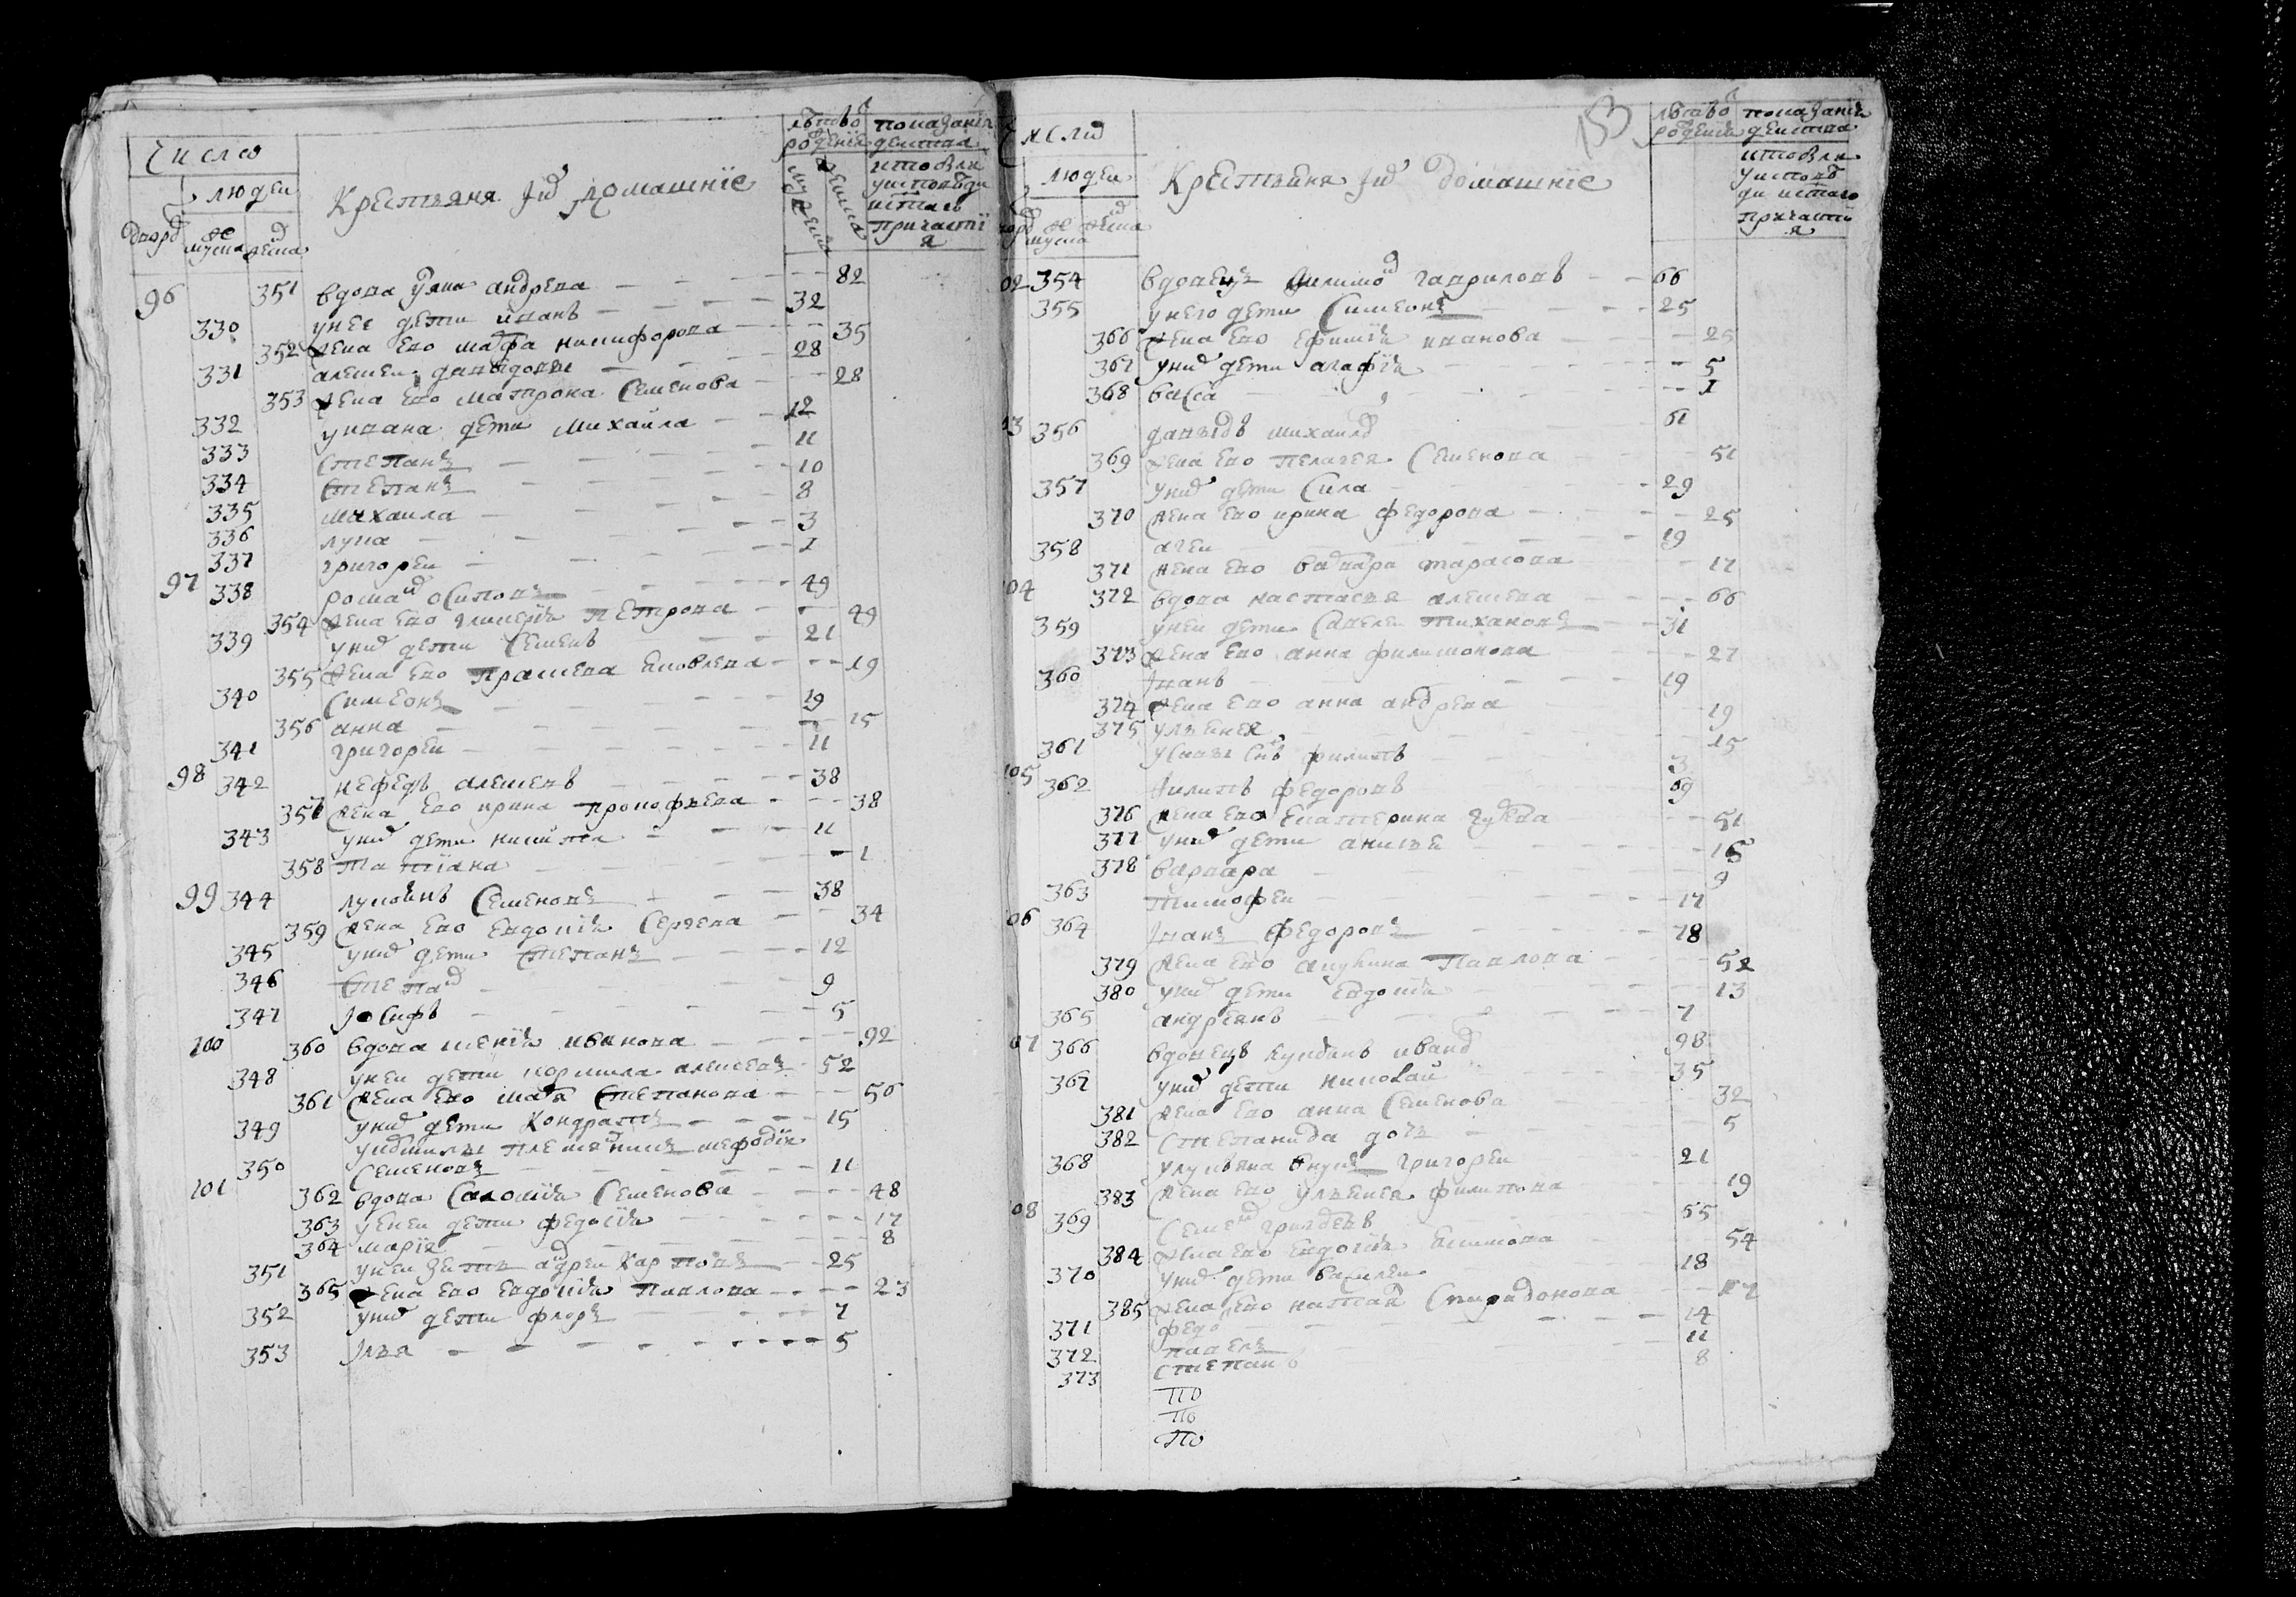 Число
людей
Крестьяна и их домашние
лѣта во рождения
показания действа
кто былъ у исповѣди и святаго причастия
дворов
мужеска
женска
мужеска
женска
96 351 вдова Улиа андрева 82
330 у нее дети иванъ 32
352 жена ево марфа никифорова 35
331 алексеи давыдовъ 28
353 жена ево матрона Семенова 28
332 у ивана дети михаила 12
333 Степанъ 11
334 Степанъ 10
335 михаила 8
336 лука 3
337 григореи 1
97 338 роман осиповъ 49
354 жена ево гликерия петрова 49
339 у них дети Семенъ 21
355 жена ево прасковя яковлева 19
340 Симеонъ 19
356 анна 15
341 григореи 11
98 342 нефедъ алексевъ 38
357 жена ево ирина прокофьева 38
343 у них дети никита 11
358 татиана 1
99 344 лукоянъ Семеновъ 38
359 жена ево евдокия Сергеева 34
345 у них дети Степанъ 12
346 Степан 9
347 Иосифъ 5
100 360 вдова ксения иванова 92
348 у неи дети кормила алексевъ 52
361 жена ево мавра Степанова 50
349 у них дети Кондратъ 15
племянникъ мефодия
350 Семеновъ 11
101 362 вдова Саломия Семенова 48
363 у неи дети федосия 17
364 мария 8
351 у неи зять андреи Карповъ 25
365 жена ево евдокия Павлова 23
352 у них дети флоръ 7
353 Илья 5
Число
153
людей
Крестьяна и их домашние
лѣта во рождения
показания действа
кто былъ у исповѣди и святаго причастия
дворов
мужеска
женска
02 354 вдовецъ Филимон гавриловъ 66
355 у него дети Симеонъ 25
366 жена ево ефимия иванова 25
367 у них дети агафия 5
368 васса 1
03 356 давыдъ михаилов 61
369 жена ево пелагея Семенова 51
357 у них дети Сила 29
370 жена ево ирина федорова 25
358 агеи 19
371 жена ево варвара тарасова 17
04 372 вдова настасья алексева 66
359 у неи дети Савелеи тихановъ 31
373 жена ево анна филимонова 27
360 Иванъ 19
374 жена ево анна андрева 19
375 ульянея 15
361 у Савы Снъ филипъ 3
105 362 Филипъ федоровъ 69
376 жена ево Екатерина 51
377 у них дети анисья 16
378 варвара 9
363 тимофеи 17
06 364 Иванъ федоровъ 78
379 жена ево акулина Павлова 52
380 у них дети евдокия 13
365 андреянъ 7
07 366 вдовецъ лукоянъ иванов 98
367 у них дети николаи 35
381 жена ево анна Семенова 32
382 Степанида дочь 5
368 у лукьяна внукъ григореи 21
383 жена ево ульянея филипова 19
08 369 Семен 55
384 жена ево евдокия екимова 54
370 у них дети василеи 18
385 жена ево наталя Спиридонова 17
371 федо 14
372 павелъ 11
373 Степанъ 8
по
по
по